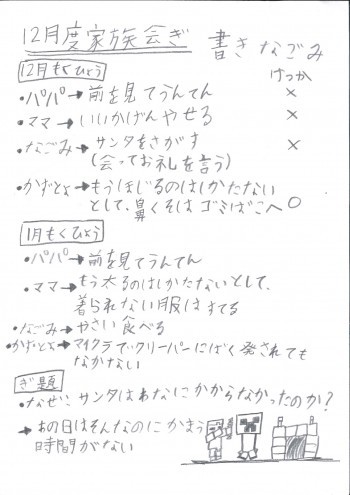 12月度家族会ぎ 書き なごみ
12月もくひょう けっか
・パパ→前を見てうんてん ×
・ママ→いいかげんやせる ×
・なごみ→サンタをさがす ×
(会ってお礼を言う)
・かずとよ→もうほじるのはしかたない
として、鼻くそはゴミばこへ ○
1月もくひょう
・パパ→前を見てうんてん
・ママ→もう太るのはしかたないとして、
着られない服はすてる
・なごみ→やさい食べる
・かずとよ→マイクラでクリーパーにばく発されても
なかない
ぎ題
・なぜ サンタはわなにかからなかったのか?
→あの日はそんなのにかまう
時間がない